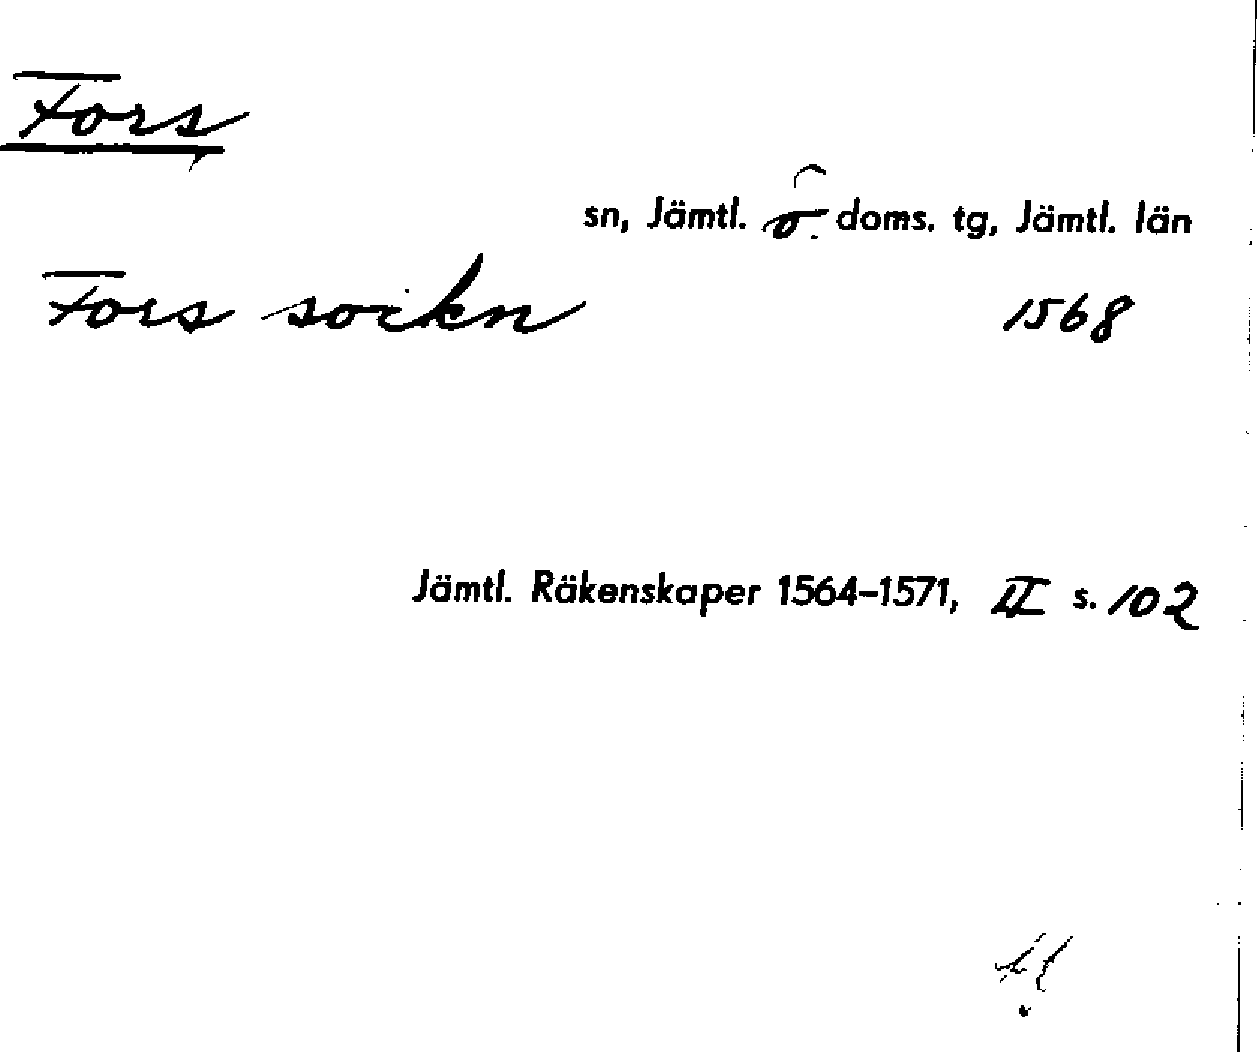 Fors
sn, Jämtl. ö. doms. tg, Jämtl. län
Fors sockn 1568
Jämtl. Räkenskaper 1564–1571, II s. 102